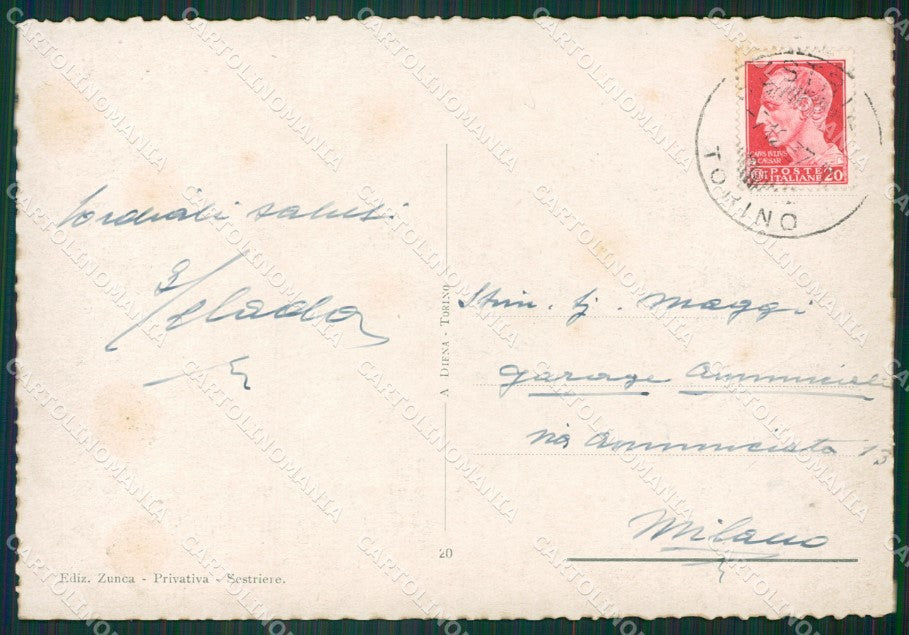 Cordiali saluti
A DIENA - TORINO
20
Ediz. Zunca - Privativa - Sestriere.
SESTRIERE
TORINO
CAIUS IULIUS
CAESAR
CENT POSTE
ITALIANE 20
Maggi
garage Annunciata
via Annunciata 13
Milano
CARTOLINOMANIA